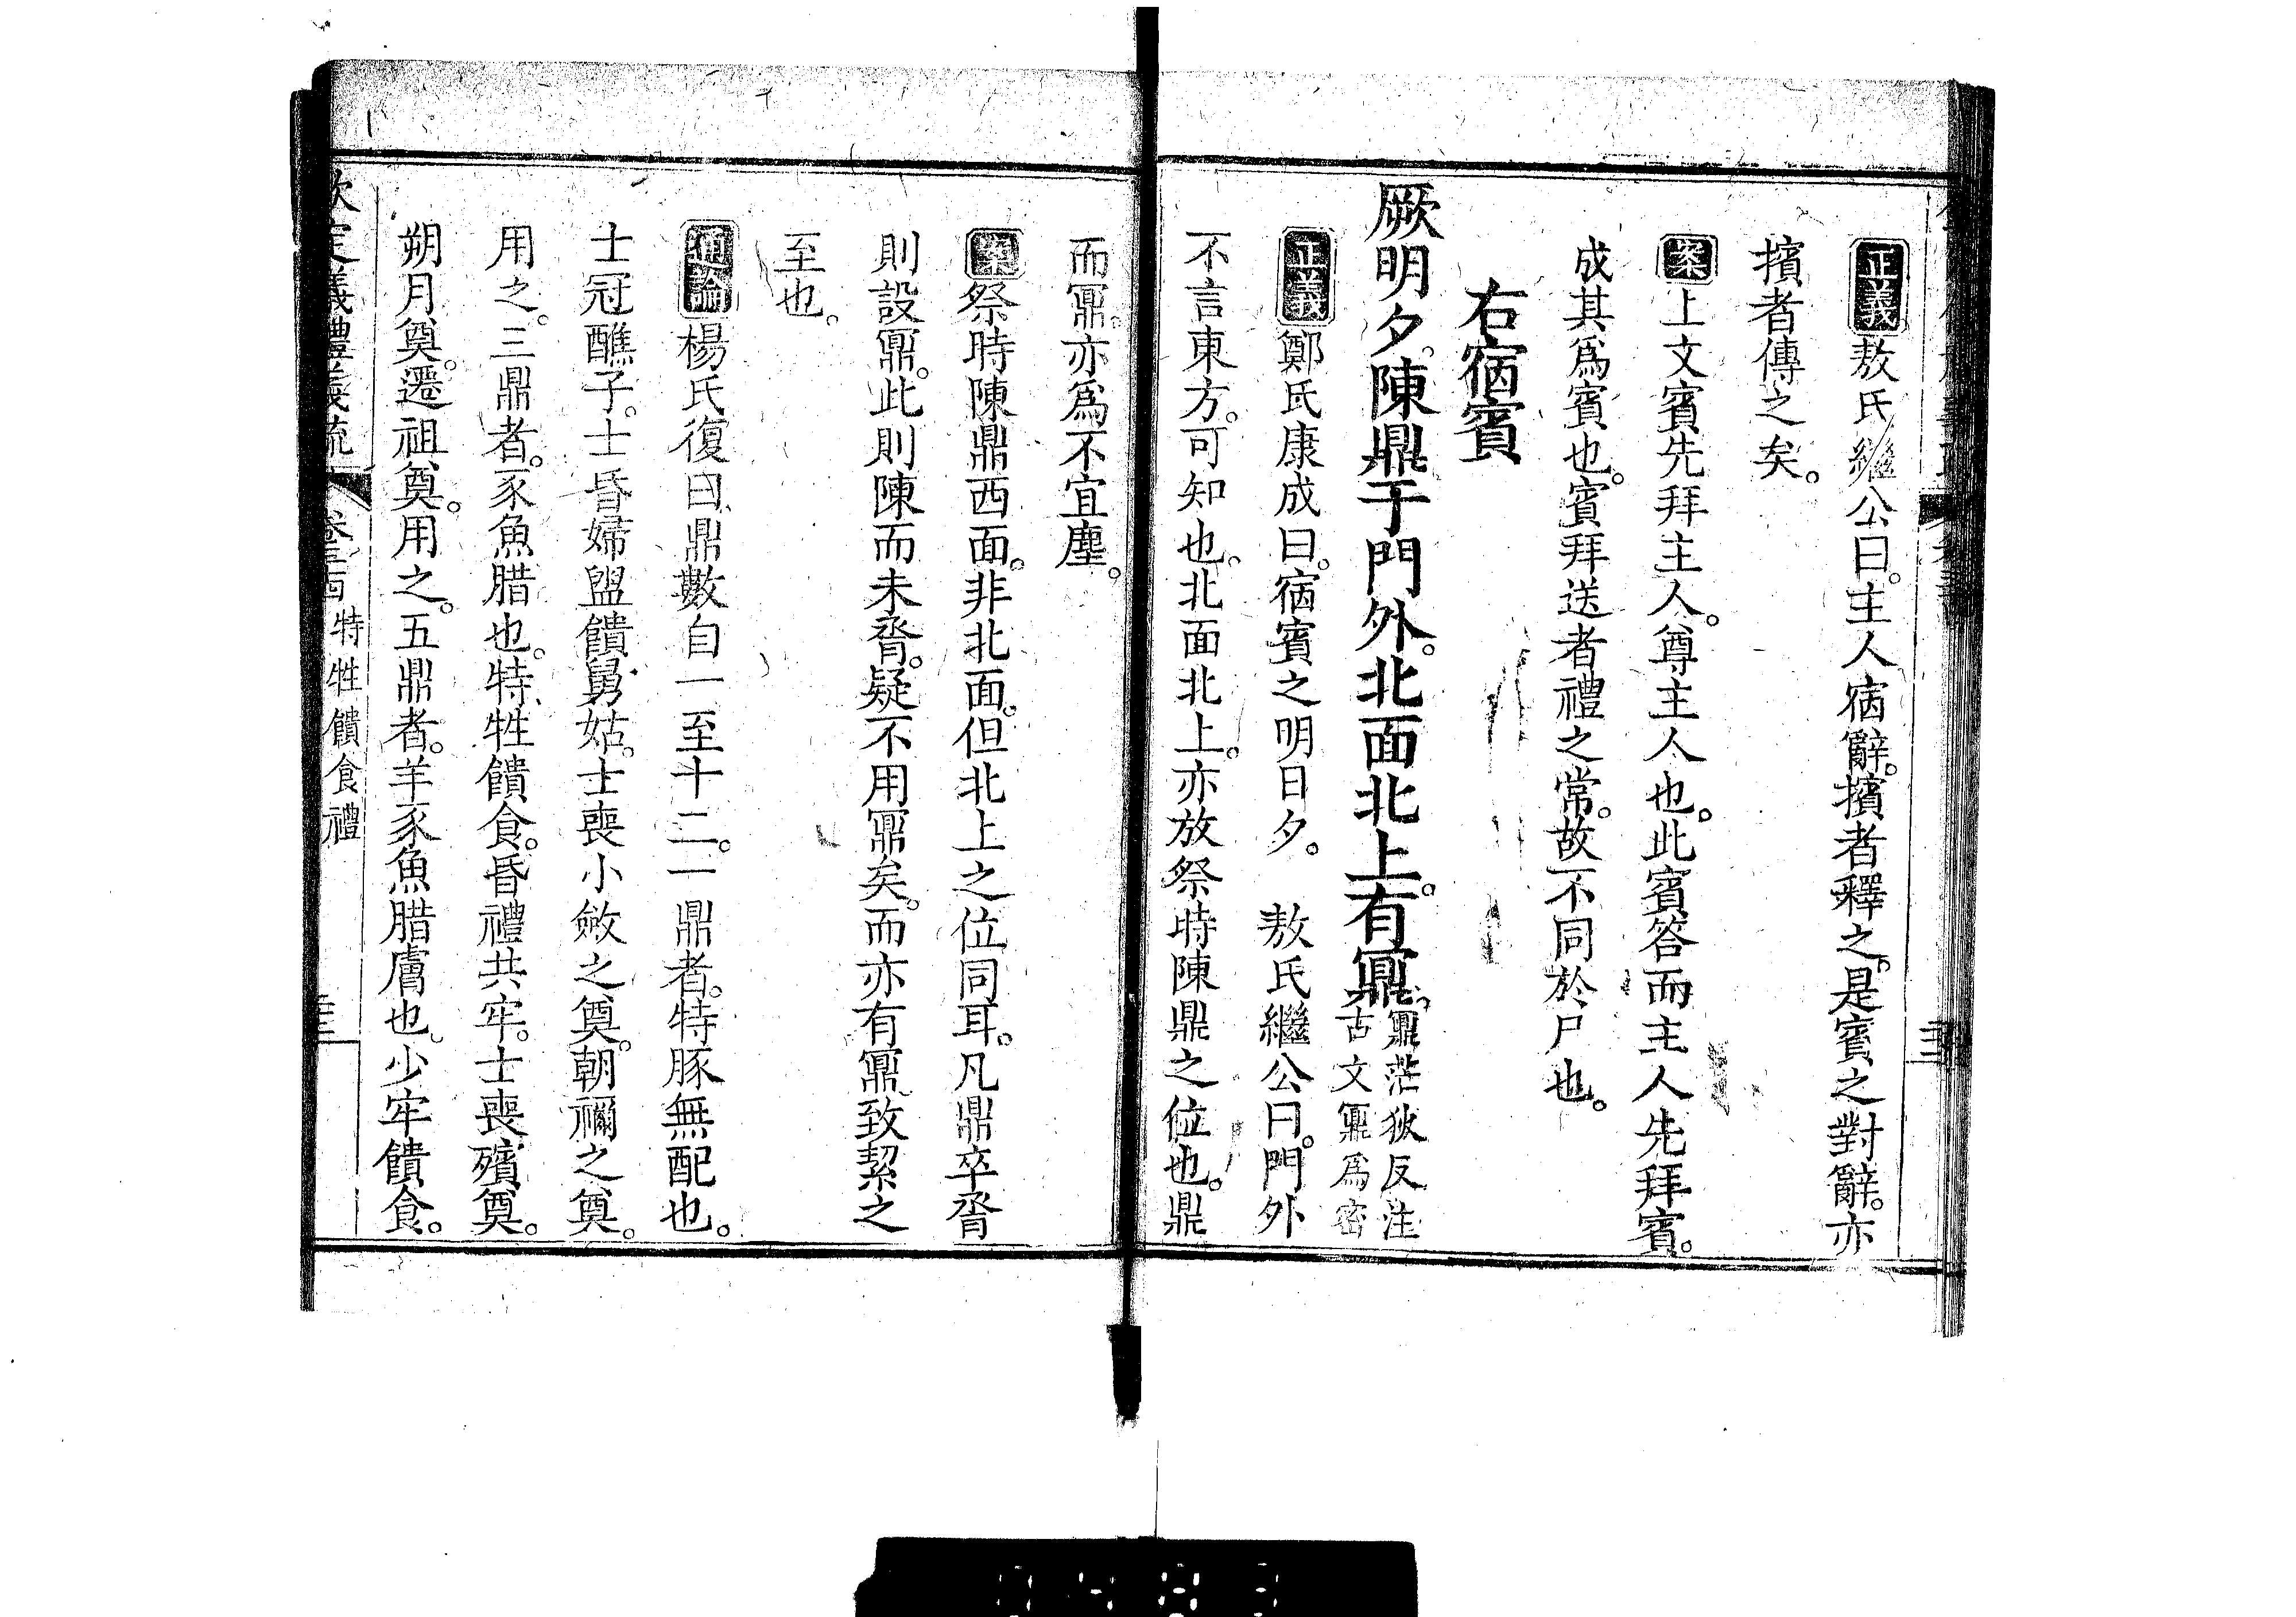 正義敖氏繼公曰。主人宿辭。擯者釋之。是賓之對辭。亦
擯者傳之矣。
案上文賓先拜主人。尊主人也。此賓答而主人先拜賓。
成其爲賓也。賓拜送者禮之常。故不同於尸也。
右宿賓
厥明夕。陳鼎于門外。北面北上。有鼏。鼏茫狄反注
古文鼏爲密
正義鄭氏康成曰。宿賓之明日夕。 敖氏繼公曰。門外
不言東方。可知也。北面北上。亦放祭時陳鼎之位也。鼎
而鼏。亦爲不宜塵。
案祭時陳鼎西面。非北面。但北上之位同耳。凡鼎卒脀
則設鼏。此則陳而未脀。疑不用鼏矣。而亦有鼏、致絜之
至也。
通論楊氏復曰、鼎數自一至十二。一鼎者。特豚無配也。
士冠醮子。士昏婦盥饋舅姑。士喪小斂之奠。朝禰之奠。
用之。三鼎者。豕魚腊也。特牲饋食。昏禮共牢。士喪殯奠。
朔月奠。遷祖奠。用之。五鼎者。羊豕魚腊膚也。少牢饋食。
欽定儀禮義疏 卷三十四 特牲饋食禮